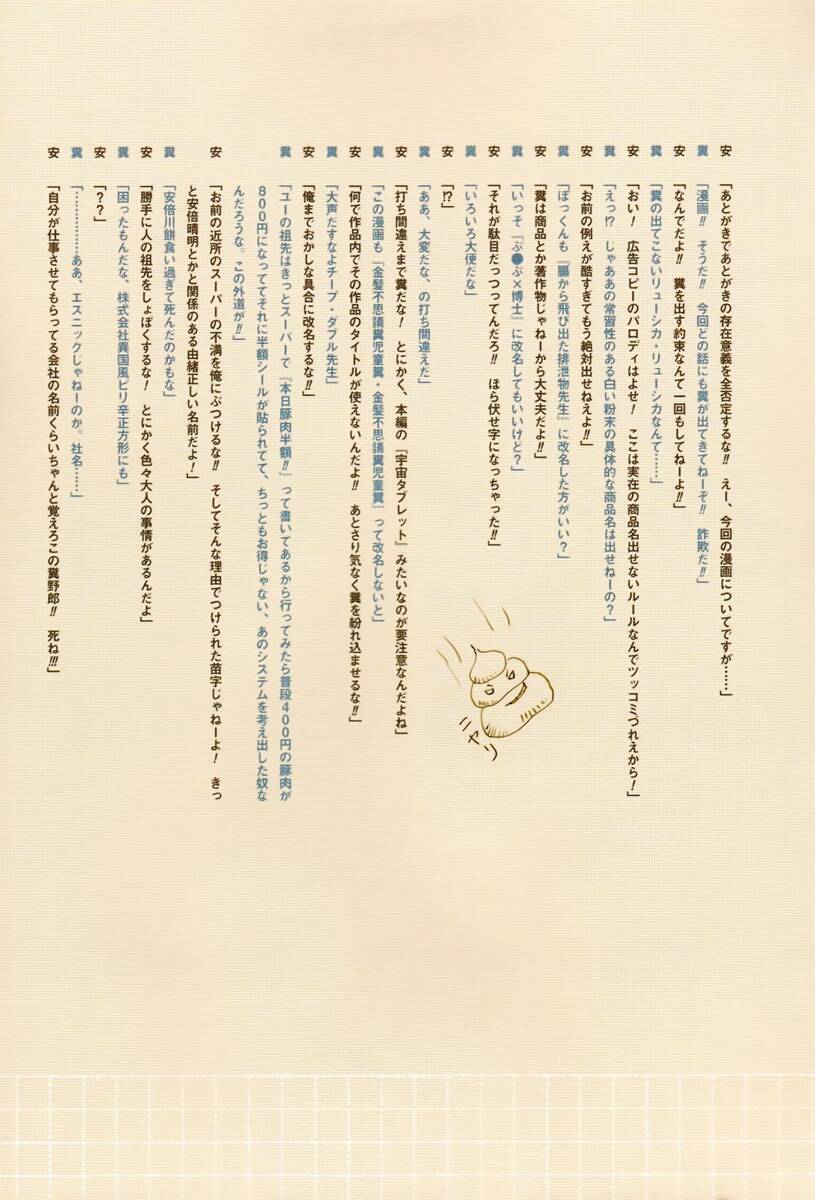 安「あとがきであとがきの存在意義を全否定するな!! えー、今回の漫画についてですが……」
糞「漫画!! そうだ!! 今回どの話にも糞が出てきてねーぞ!! 詐欺だ!!」
安「なんでだよ!! 糞を出す約束なんて一回もしてねーよ!!」
糞「糞の出てこないリューシカ・リューシカなんて……」
安「おい! 広告コピーのパロディはよせ! ここは実在の商品名出せないルールなんでツッコミづれえから!」
糞「えっ!? じゃああの常習性のある白い粉末の具体的な商品名は出せねーの?」
安「お前の例えが酷すぎてもう絶対出せねえよ!!
糞「ぼっくんも『腸から飛び出た排泄物先生』に改名した方がいい?」
安「糞は商品とか著作物じゃねーから大丈夫だよ!!
糞「いっそ『ぷ●ぷ×博士』に改名してもいいけど?」
安「それが駄目だっつってんだろ!! ほら伏せ字になっちゃった!!」
糞「いろいろ大便だな」
安「!?」
糞「ああ、大変だな、の打ち間違えだ」
安「打ち間違えまで糞だな! とにかく、本編の『宇宙タブレット』みたいなのが要注意なんだよね」
糞「この漫画も『金髪不思議糞児童糞・金髪不思議糞児童糞』って改名しないと」
安「何で作品内でその作品のタイトルが使えないんだよ!! あとさり気なく糞を紛れ込ませるな!!」
糞「大声だすなよチープ・ダブル先生」
安「俺までおかしな具合に改名するな!!」
糞「ユーの祖先はきっとスーパーで『本日豚肉半額!!』って書いてあるから行ってみたら普段400円の豚肉が
800円になっててそれに半額シールが貼られてて、ちっともお得じゃない、あのシステムを考え出した奴な
んだろうな。この外道が!!」
安「お前の近所のスーパーの不満を俺にぶつけるな!! そしてそんな理由でつけられた苗字じゃねーよ! きっ
と安倍晴明とかと関係のある由緒正しい名前だよ!」
糞「安倍川餅食い過ぎて死んだのかもな」
安「勝手に人の祖先をしょぼくするな! とにかく色々大人の事情があるんだよ」
糞「困ったもんだな、株式会社異国風ピリ辛正方形にも」
安「??」
糞「……………ああ、エスニックじゃねーのか。社名……」
安「自分が仕事させてもらってる会社の名前くらいちゃんと覚えろこの糞野郎!! 死ね!!!」
ニヤリ